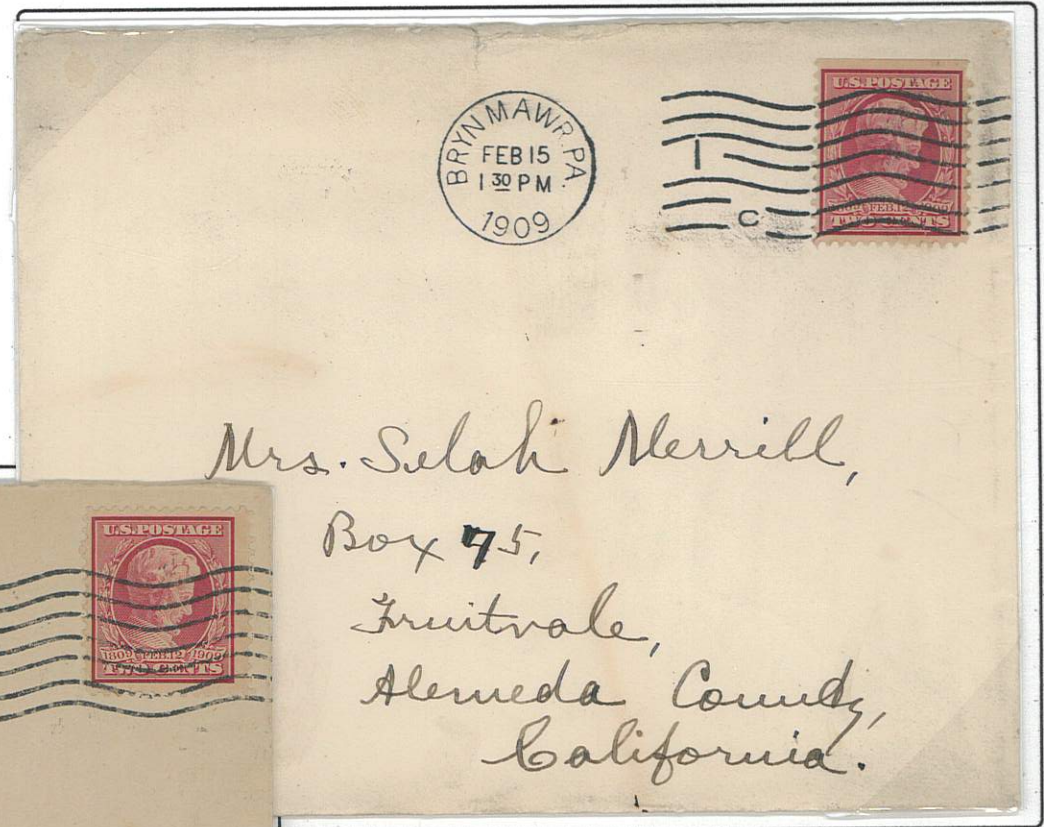 U.S. POSTAGE
BRYN MAWR, PA.
FEB 15
1 30 PM
1909
1
C
1809 FEB 12 1909
TWO CENTS
Mrs. Selah Merrill,
Box 75,
Fruitvale,
Alameda County,
California.
U.S. POSTAGE
1809 FEB 12 1909
TWO CENTS